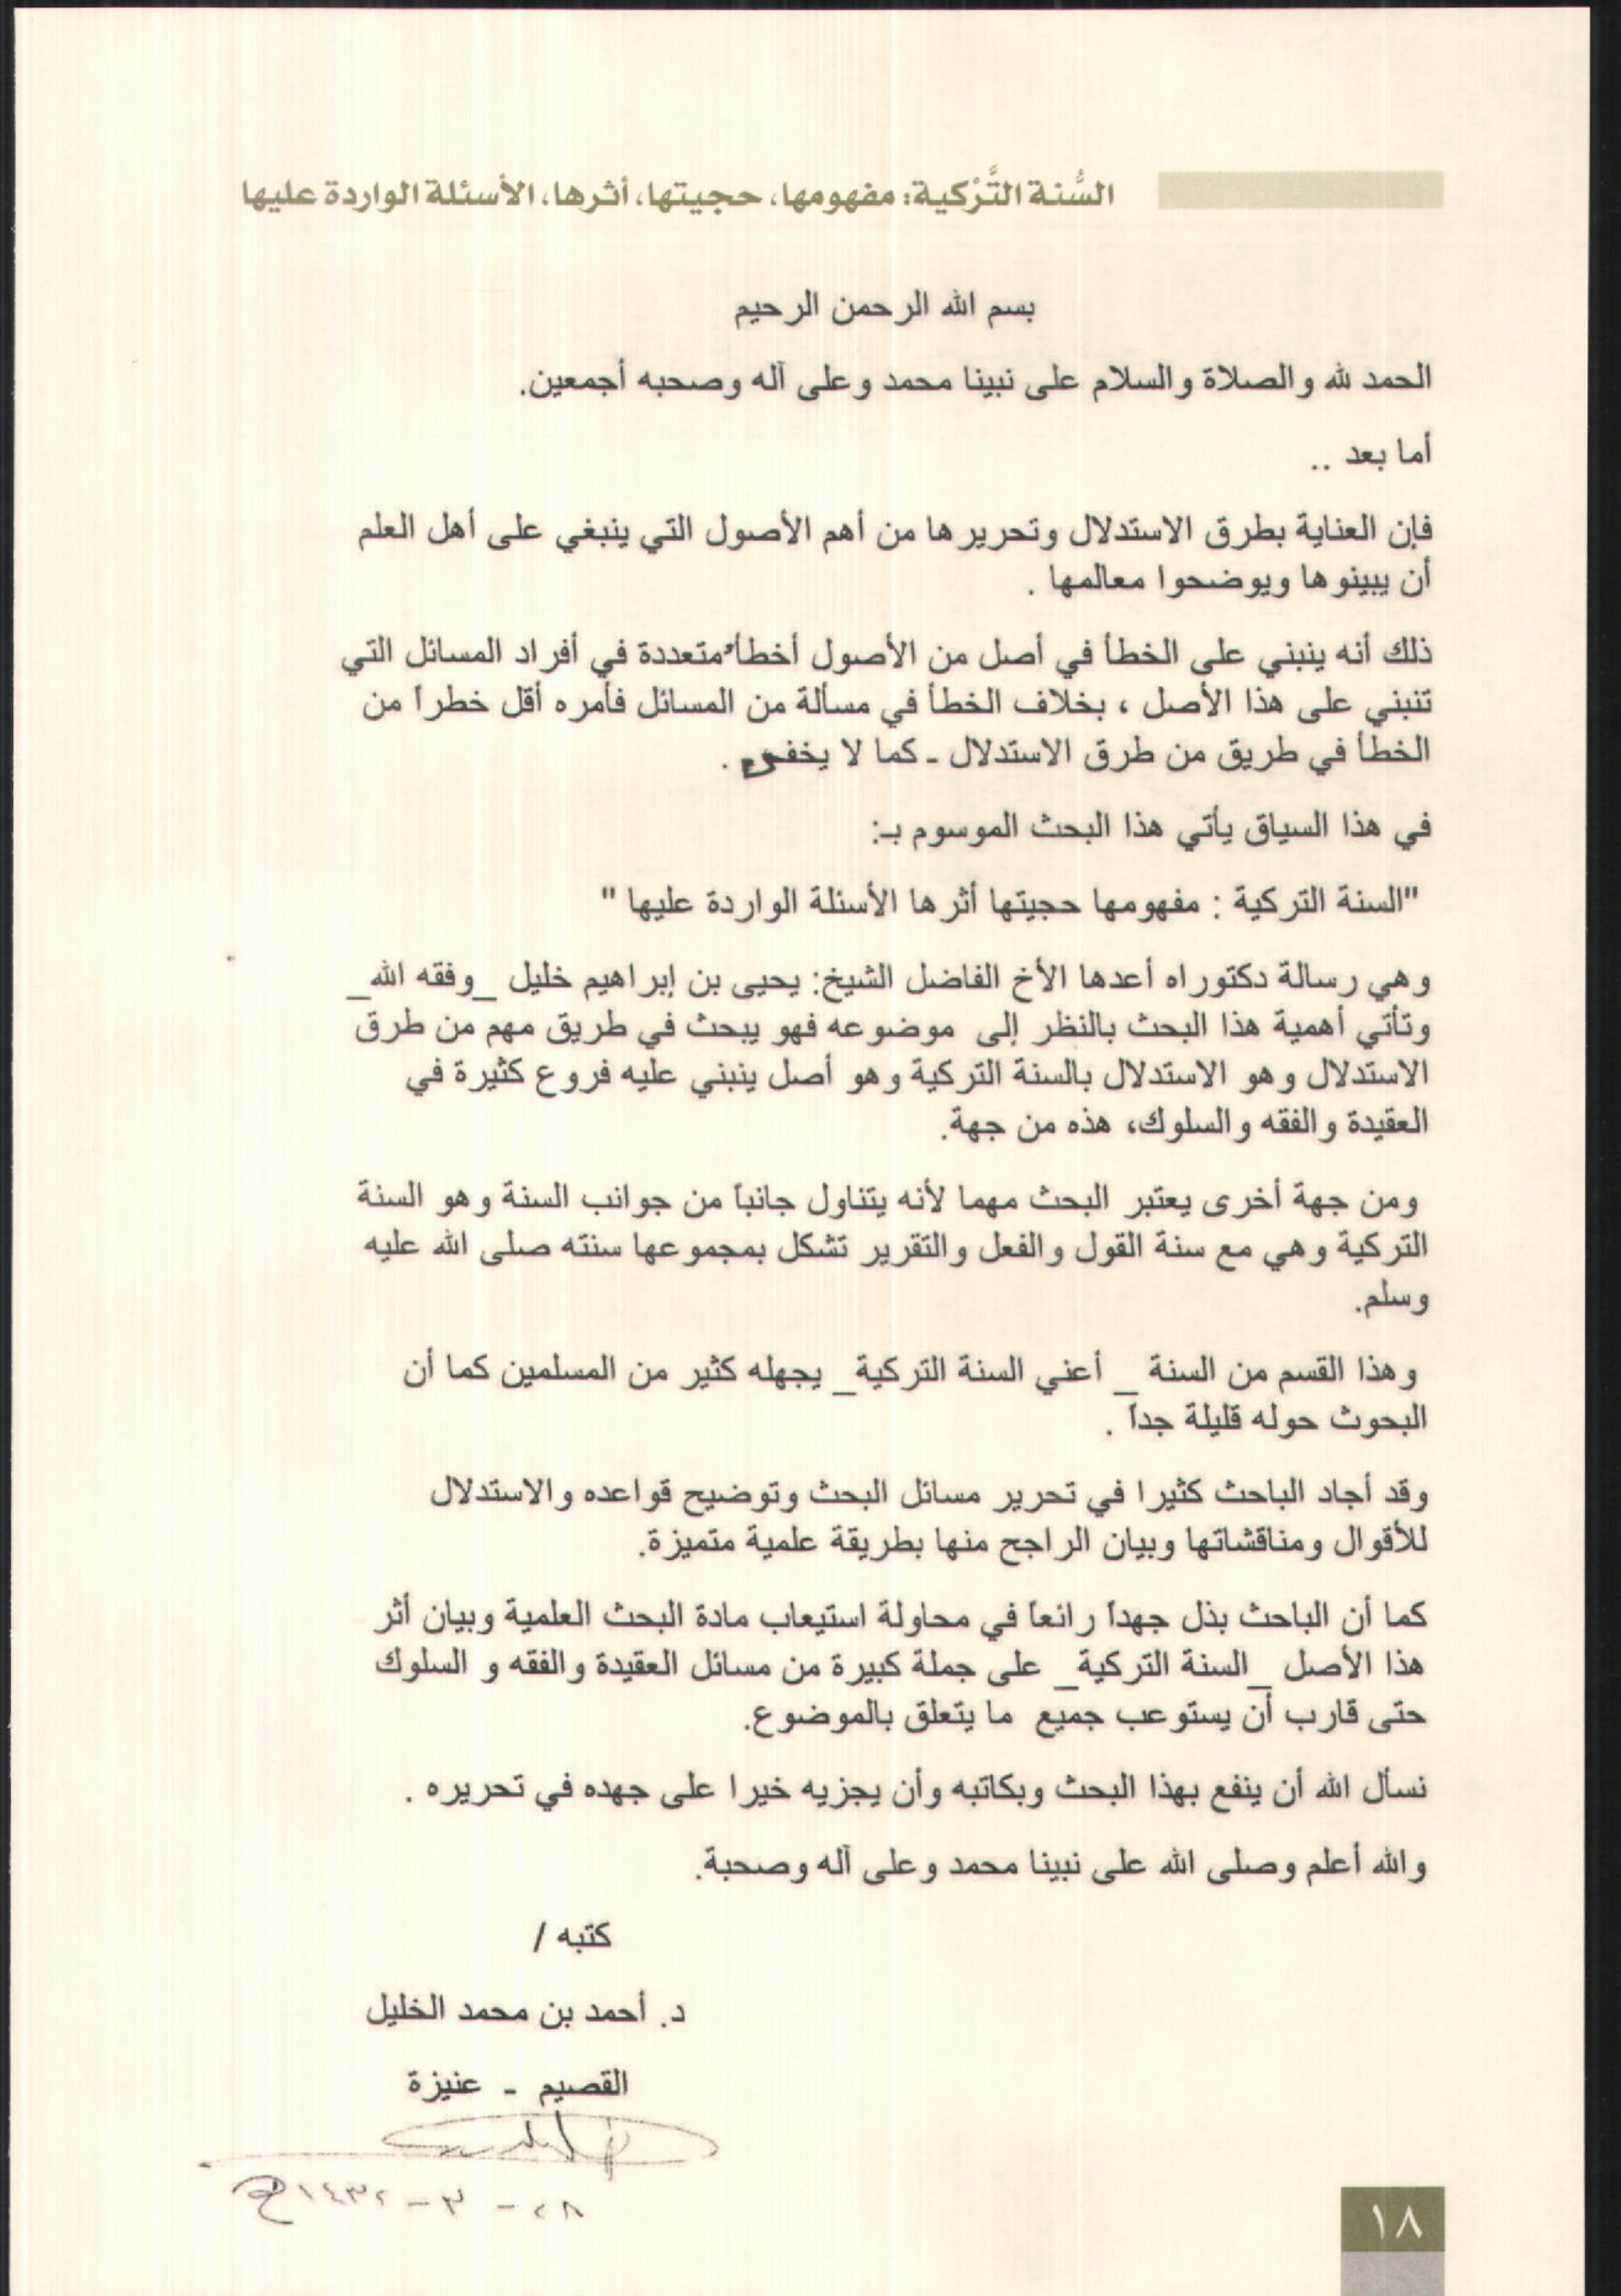 السُّنة التَّرْكية: مفهومها، حجيتها، أثرها، الأسئلة الواردة عليها
بسم الله الرحمن الرحيم
الحمد لله والصلاة والسلام على نبينا محمد وعلى آله وصحبه أجمعين.
أما بعد ..
فإن العناية بطرق الاستدلال وتحريرها من أهم الأصول التي ينبغي على أهل العلم
أن يبينوها ويوضحوا معالمها .
ذلك أنه ينبني على الخطأ في أصل من الأصول أخطأ متعددة في أفراد المسائل التي
تنبني على هذا الأصل ، بخلاف الخطأ في مسألة من المسائل فأمره أقل خطراً من
الخطأ في طريق من طرق الاستدلال ـ كما لا يخفى .
في هذا السياق يأتي هذا البحث الموسوم بـ:
"السنة التركية : مفهومها حجيتها أثرها الأسئلة الواردة عليها "
وهي رسالة دكتوراه أعدها الأخ الفاضل الشيخ: يحيى بن إبراهيم خليل _وفقه الله_
وتأتي أهمية هذا البحث بالنظر إلى موضوعه فهو يبحث في طريق مهم من طرق
الاستدلال وهو الاستدلال بالسنة التركية وهو أصل ينبني عليه فروع كثيرة في
العقيدة والفقه والسلوك، هذه من جهة.
ومن جهة أخرى يعتبر البحث مهما لأنه يتناول جانباً من جوانب السنة وهو السنة
التركية وهي مع سنة القول والفعل والتقرير تشكل بمجموعها سنته صلى الله عليه
وسلم.
وهذا القسم من السنة _ أعني السنة التركية_ يجهله كثير من المسلمين كما أن
البحوث حوله قليلة جداً .
وقد أجاد الباحث كثيرا في تحرير مسائل البحث وتوضيح قواعده والاستدلال
للأقوال ومناقشاتها وبيان الراجح منها بطريقة علمية متميزة.
كما أن الباحث بذل جهداً رائعاً في محاولة استيعاب مادة البحث العلمية وبيان أثر
هذا الأصل _السنة التركية_ على جملة كبيرة من مسائل العقيدة والفقه و السلوك
حتى قارب أن يستوعب جميع ما يتعلق بالموضوع.
نسأل الله أن ينفع بهذا البحث وبكاتبه وأن يجزيه خيرا على جهده في تحريره .
والله أعلم وصلى الله على نبينا محمد وعلى آله وصحبة.
كتبه /
د. أحمد بن محمد الخليل
القصيم - عنيزة
٢٨ - ٣ - ١٤٣٢هـ
١٨